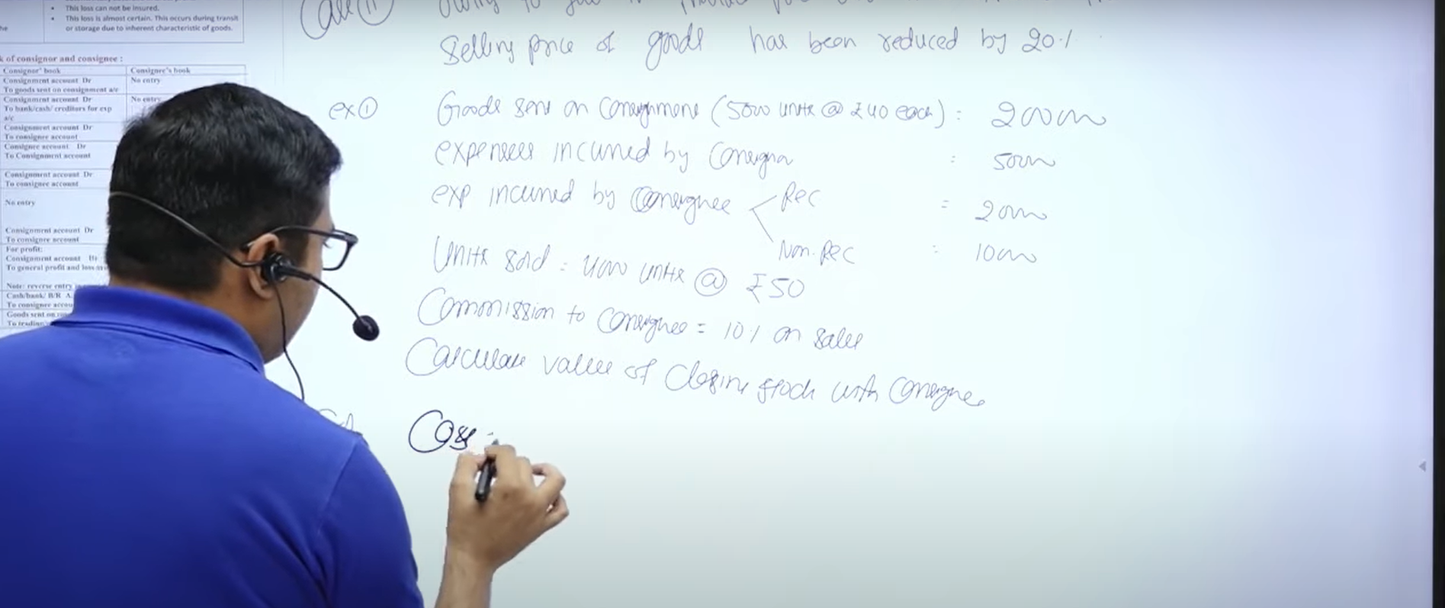 • This loss can not be insured.
• This loss is almost certain. This occurs during transit
or storage due to inherent characteristic of goods.
of consignor and consignee :
Consignor' book Consignee's book
Consignment account Dr No entry
To goods sent on consignment a/c
Consignment account Dr No entry
To bank/cash/ creditors for exp
a/c
Consignment account Dr
To consignee account
Consignee account Dr
To Consignment account
Consignment account Dr
To consignee account
No entry
Consignment account Dr
To consignee account
For profit:
Consignment account Dr
To general profit and loss
Note: reverse entry
Cash/bank/ B/R A
To consignee
Goods sent on
To
Case (ii)
Selling price of goods has been reduced by 20%
ex ① Goods sent on Consignment (5000 units @ ₹40 each) : 200000
expenses incurred by Consignor : 50000
exp incurred by Consignee Rec = 20000
Non. Rec : 10000
Units sold = 4000 units @ ₹50
Commission to Consignee = 10% on sales
Calculate value of Closing stock with Consignee